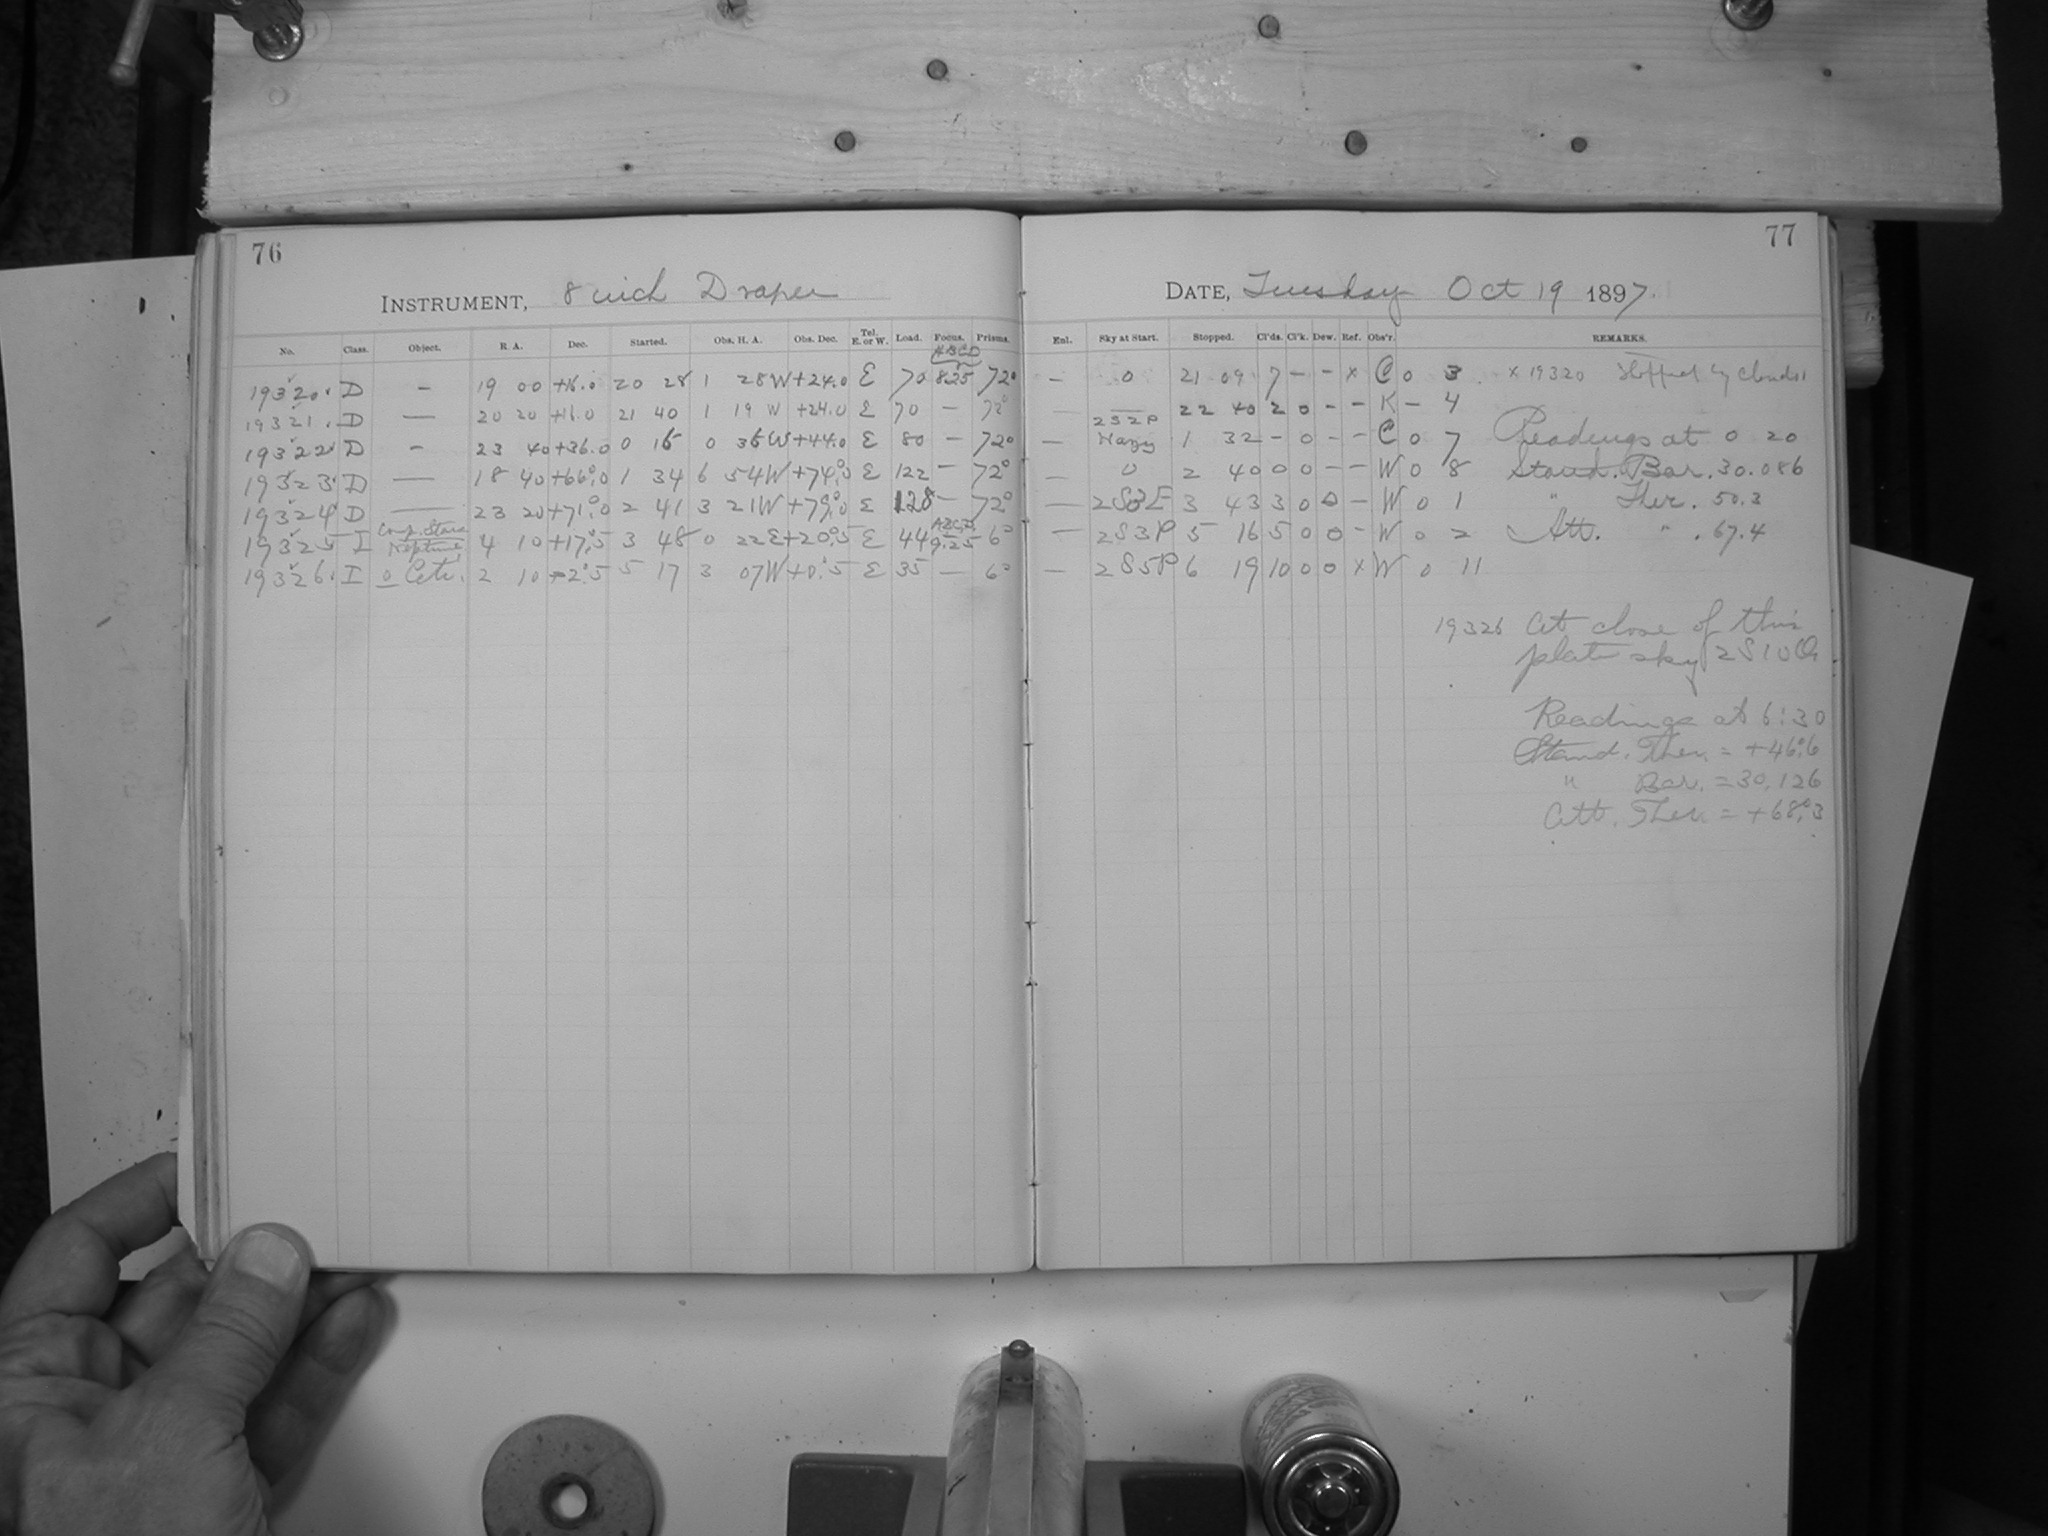 76
INSTRUMENT, 8 inch Draper
No. Class. Object. R. A. Dec. Started. Obs. H. A. Obs. Dec. Tel. E. or W. Load. Focus. Prisms.
ABCD
19320. D – 19 00 +16.0 20 28 1 28W +24.0 E 70 8.25 72°
19321. D — 20 20 +16.0 21 40 1 19 W +24.0 E 70 – 72°
19322. D – 23 40 +36.0 0 16 0 36W +44.0 E 80 – 72°
19323. D — 18 40 +66°.0 1 34 6 54W +74°.0 E 122 – 72°
19324 D — 23 20 +71°.0 2 41 3 21W +79°.0 E 128 – 72°
Comp. Stars ABCD
19325 I Neptune 4 10 +17°.5 3 48 0 22E +20°.5 E 44 9.25 6°
19326. I o Ceti. 2 10 –2°.5 5 17 3 07W +0°.5 E 35 — 6°
77
DATE, Tuesday Oct 19 1897.
Enl. Sky at Start. Stopped. Cl'ds. Cl'k. Dew. Ref. Obs'r. REMARKS.
– 0 21 09 7 – – x C 0 3 x 19320 Stopped by clouds
— 2S2P 22 40 2 0 – – K – 4
– Hazy 1 32 – 0 – – C 0 7 Readings at 0 20
— 0 2 40 0 0 – – W 0 8 Stand. Bar. 30.086
— 2S3E 3 43 3 0 0 – W 0 1 " Ther. 50.3
— 2S3P 5 16 5 0 0 – W 0 2 Att. " . 67.4
— 2S5P 6 19 10 0 0 x W 0 11
19326 At close of this
plate sky 2S10
Readings at 6:30
Stand. Ther. = +46°.6
" Bar. = 30.126
Att. Ther. = +68°.3